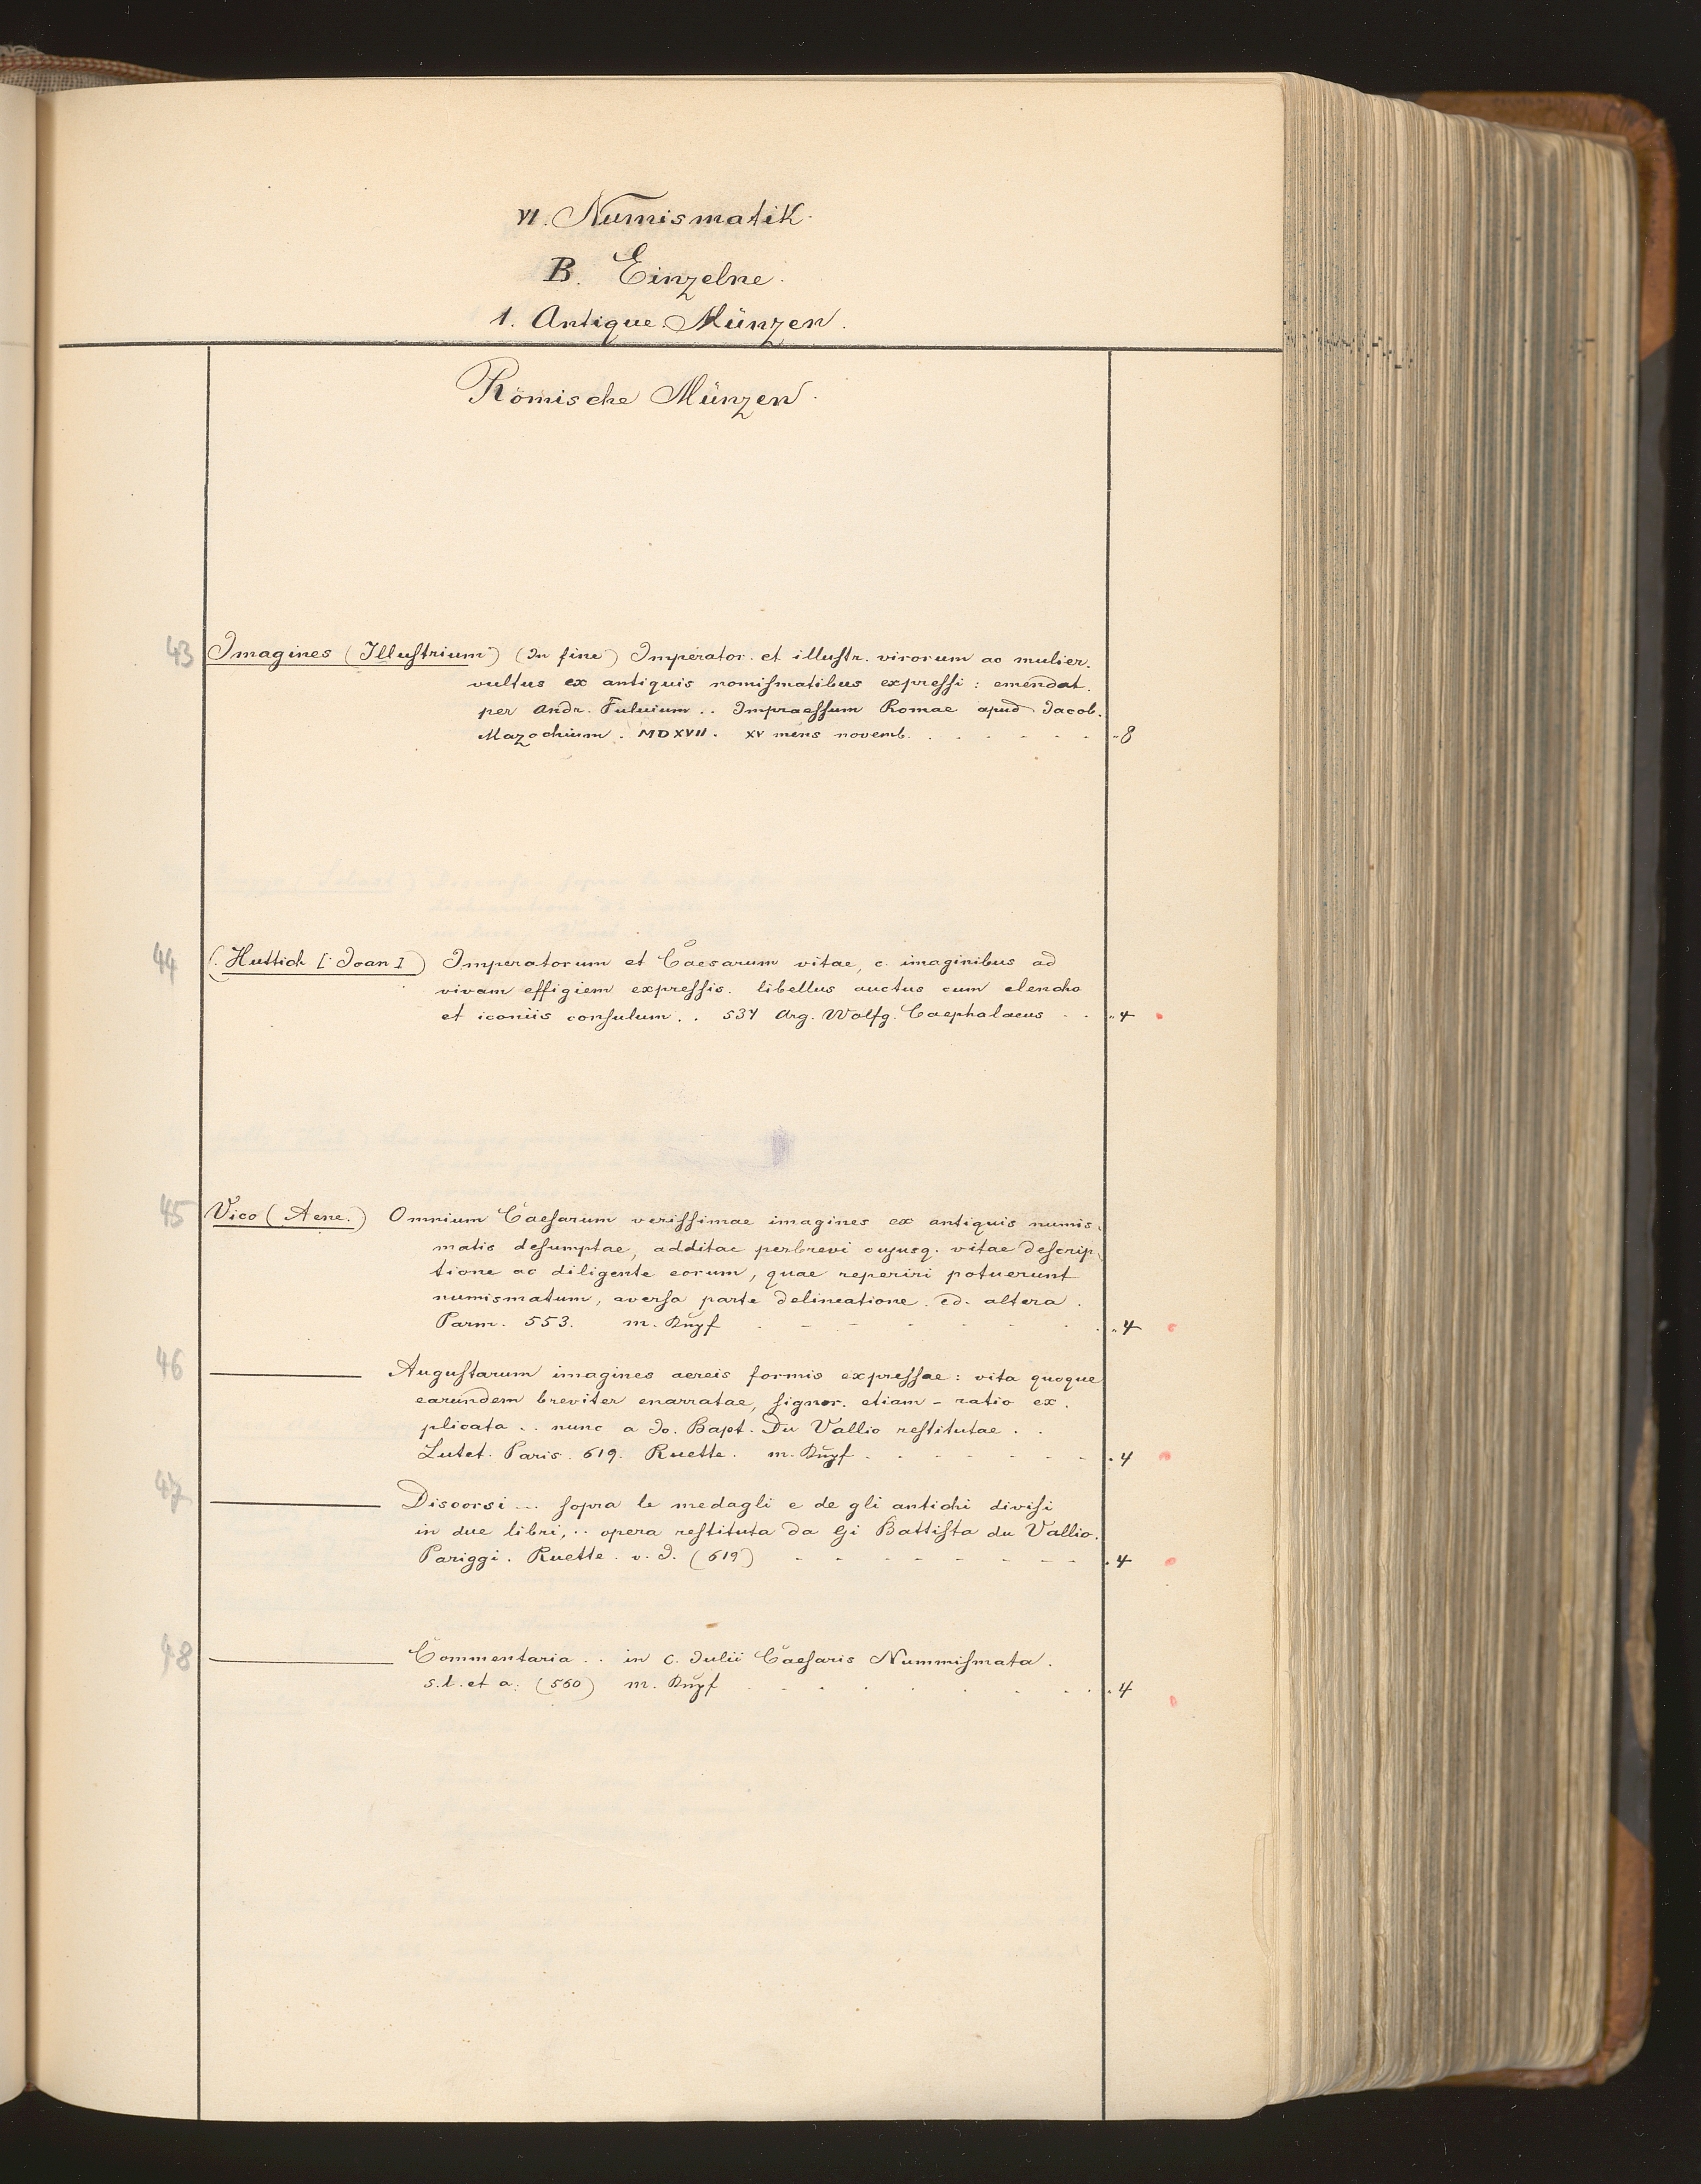 VI. Numismatik.
B. Einzelne.
1. Antique. Münzen.
Römische Münzen.
43 Imagines (Illustrium) (In fine) Imperator. et illustr. virorum ac mulier.
vultus ex antiquis nomismatibus expressi: emendat.
per Andr. Fuluium .. Impraessum Romae apud Jacob.
Mazochium. MDXVII. XV mens novemb. . . . . . . "8
44 (Huttich [: Joan]) Imperatorum et Caesarum vitae, c. imaginibus ad
vivam effigiem expressis. libellus auctus cum elencho
et iconiis consulum .. 534 Arg. Wolfg. Caephalaeus . . "4
45 Vico (Aene.) Omnium Caesarum verissimae imagines ex antiquis numis
matis desumptae, additae perbrevi cujusq. vitae descrip
tione ac diligente eorum, quae reperiri potuerunt
numismatum, aversa parte delineatione. ed. altera.
Parm. 553. m. Kupf . - - - . . . "4
46 ——— Augustarum imagines aereis formis expressae: vita quoque
earundem breviter enarratae, signor. etiam - ratio ex.
plicata .. nunc a Jo. Bapt. Du Vallio restitutae . .
Lutet. Paris. 619. Ruette. m. Kupf . . . - - - - . 4
47 ——— Discorsi ... sopra le medagli e de gli antichi divisi
in due libri, .. opera restituta da Gi Battista du Vallio.
Pariggi. Ruette. v. J. (619) - - - - - - - - . 4
48 ——— Commentaria .. in C. Julii Caesaris Nummismata.
s. l. et a. (560) m. Kupf . . . . . . . . . 4